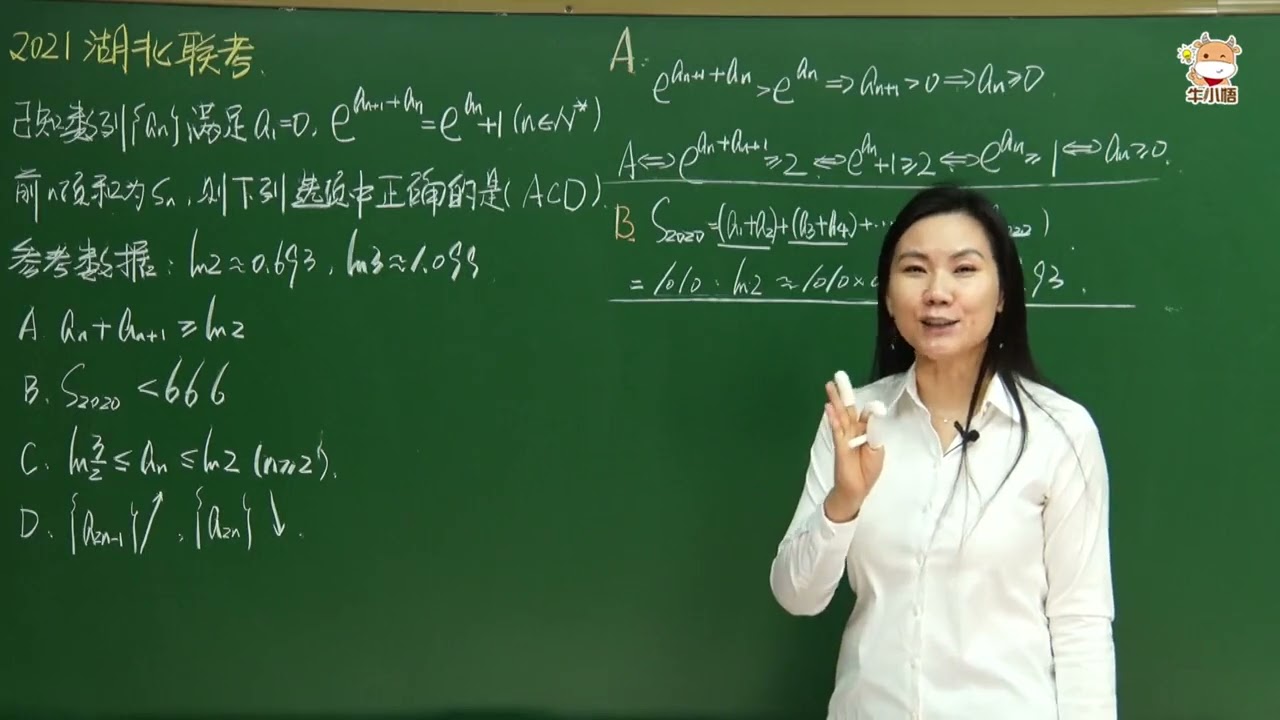 2021湖北联考.
已知数列{aₙ}满足a₁=0, e^(aₙ₊₁+aₙ)=e^(aₙ)+1(n∈N*)
前n项和为Sₙ, 则下列选项中正确的是(ACD).
参考数据: ln2≈0.693, ln3≈1.099
A. aₙ+aₙ₊₁≥ln2
B. S₂₀₂₀<666
C. ln3/2≤aₙ≤ln2 (n≥2).
D. {a₂ₙ₋₁}↗, {a₂ₙ}↘.
A:
e^(aₙ₊₁+aₙ)>e^(aₙ)⇒aₙ₊₁>0⇒aₙ≥0.
A⇔e^(aₙ+aₙ₊₁)≥2⇔e^(aₙ)+1≥2⇔e^(aₙ)≥1⇔aₙ≥0.
B. S₂₀₂₀=(a₁+a₂)+(a₃+a₄)+⋯
=1010·ln2≈1010×
93.
牛小悟